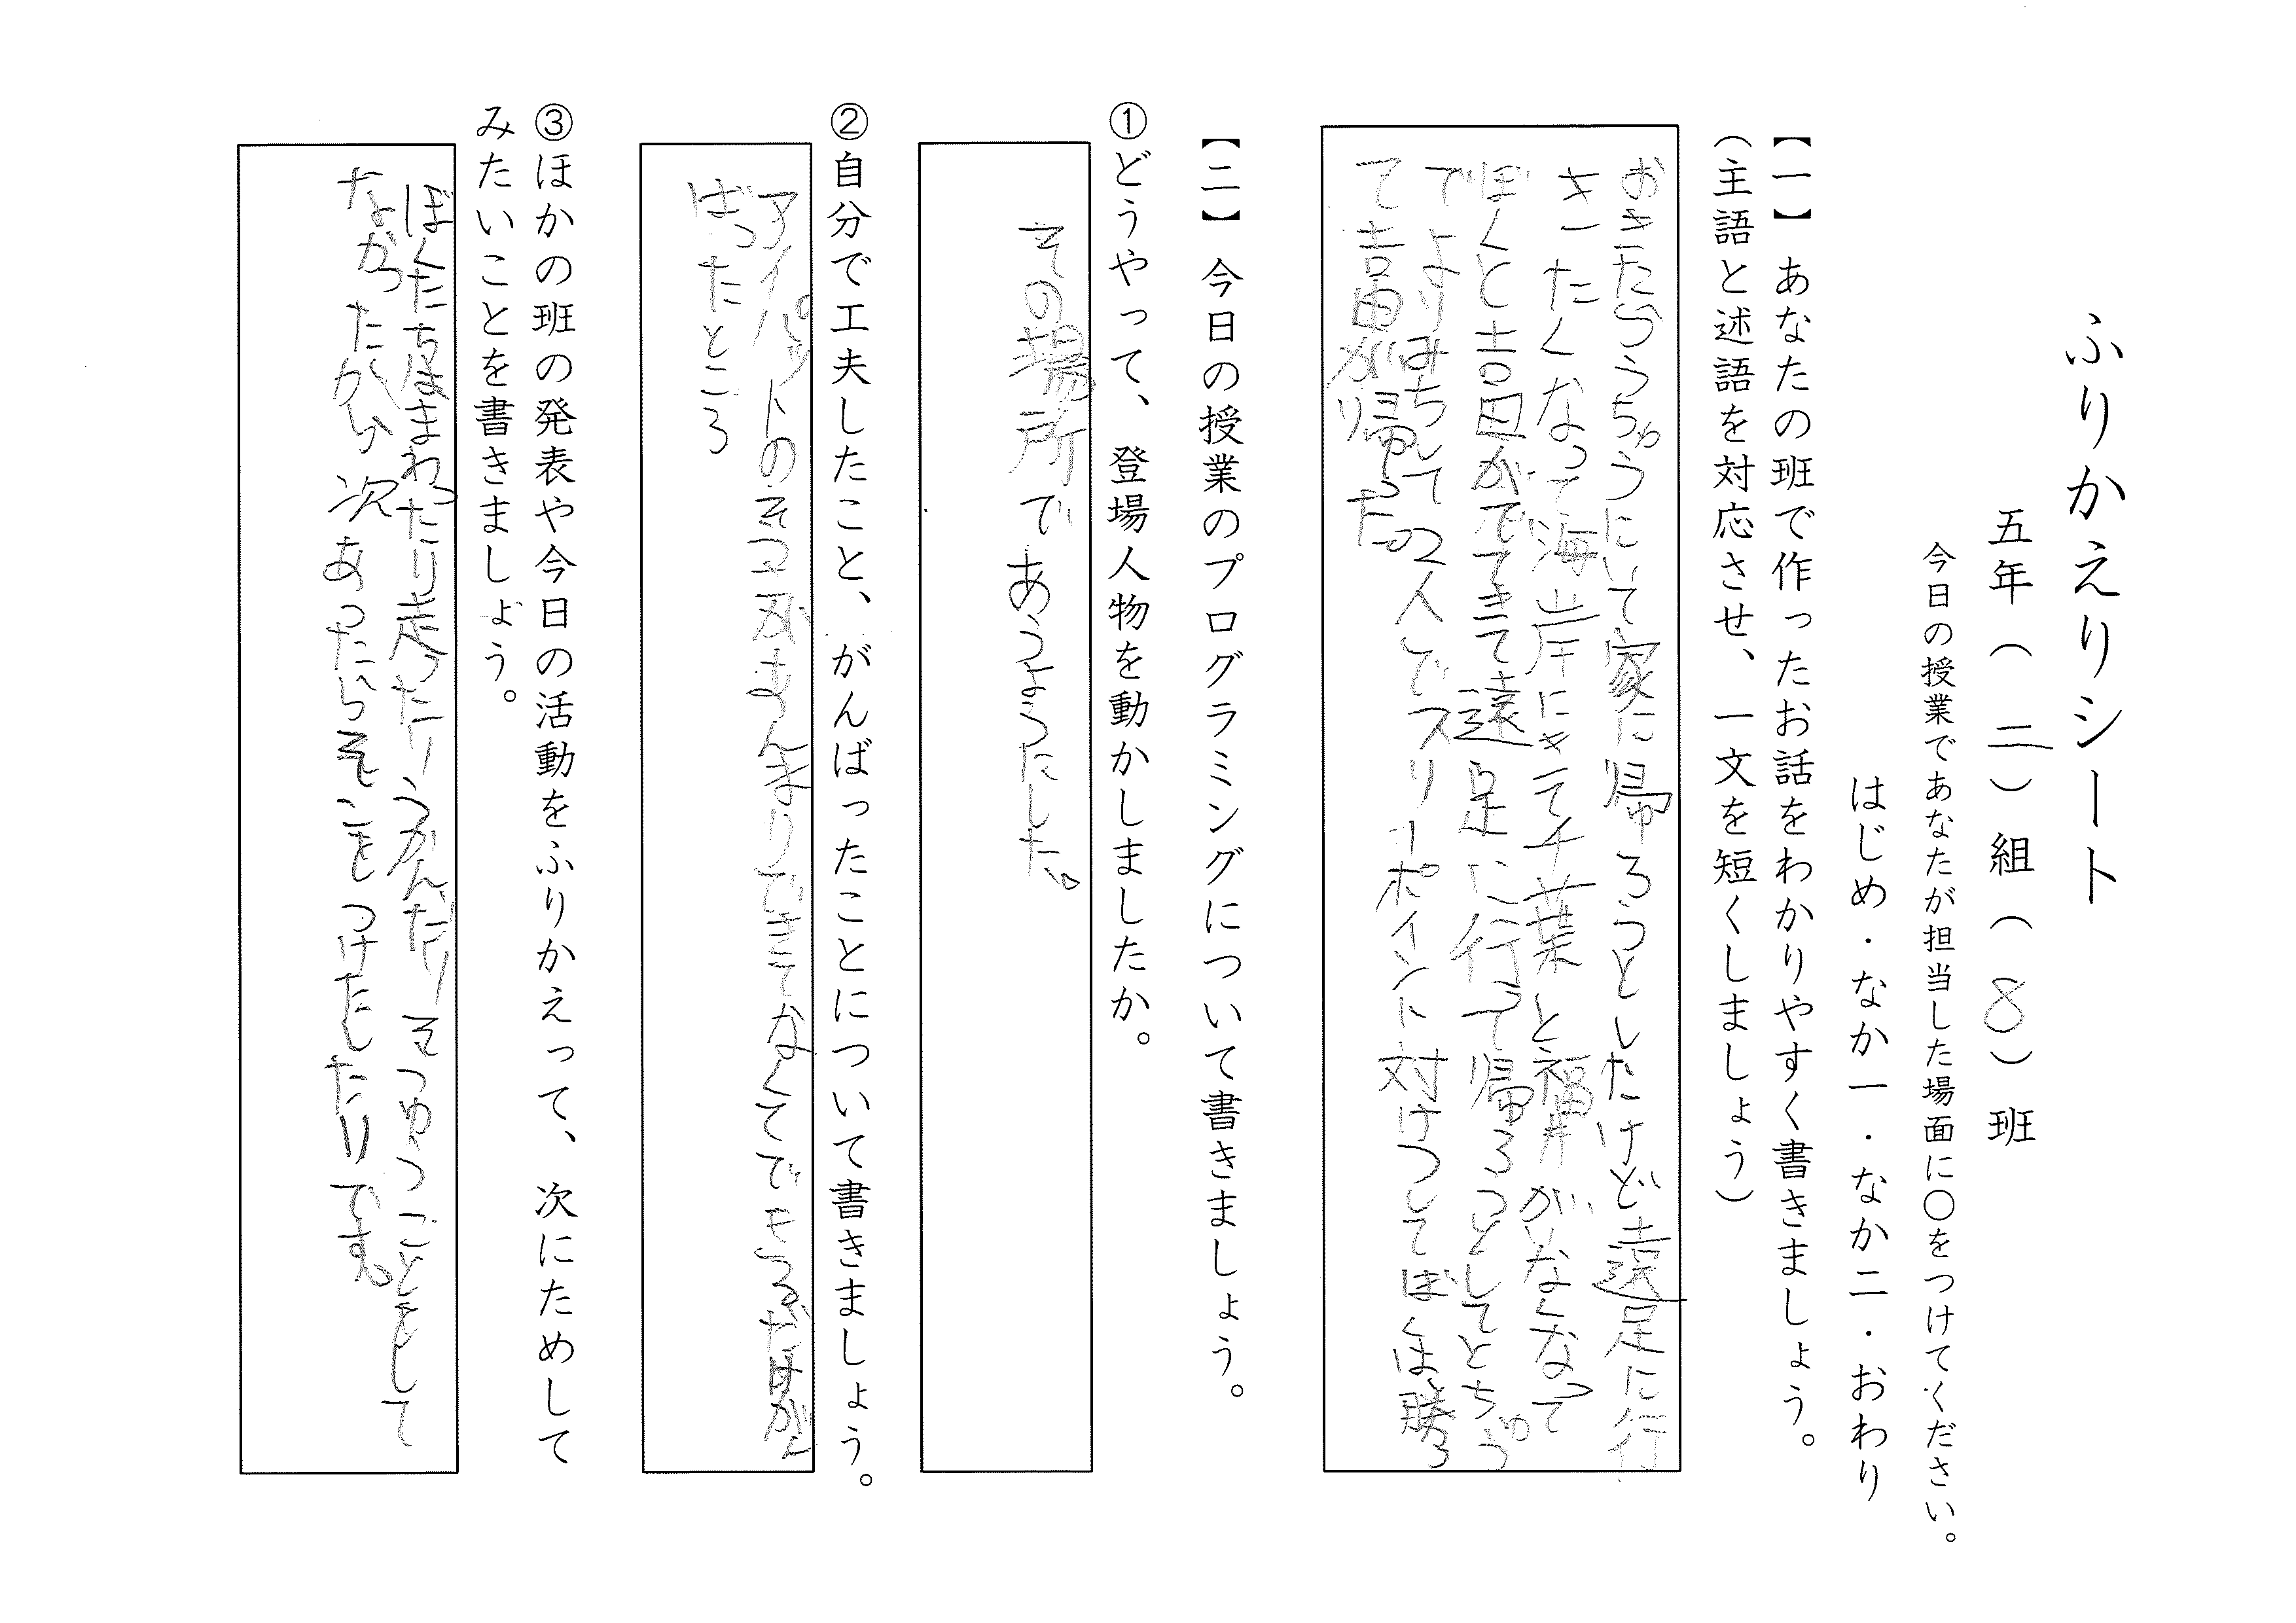 ふりかえりシート
五年（二）組（8）班
今日の授業であなたが担当した場面に○をつけてください。
はじめ・なか一・なか二・おわり
【一】あなたの班で作ったお話をわかりやすく書きましょう。
（主語と述語を対応させ、一文を短くしましょう）
おきたらうちゅうにいて家に帰ろうとしたけど遠足に行
きたくなって海岸にきて千葉と福井がいなくなって
ぼくと吉田がでてきて遠足に行って帰ろうとしてとちゅう
でよりみちして2人でスリーポイント対けつしてぼくは勝
て吉田が帰った。
【二】今日の授業のプログラミングについて書きましょう。
①どうやって、登場人物を動かしましたか。
その場所であうようにした。
②自分で工夫したこと、がんばったことについて書きましょう。
アイパットのそうさがあんまりできてなくてでもがん
ばったところ
③ほかの班の発表や今日の活動をふりかえって、次にためして
みたいことを書きましょう。
ぼくたちはまわったり走ったりうかんだりそうゆうことをして
なかったから次あったらそこもつけたしたりです。